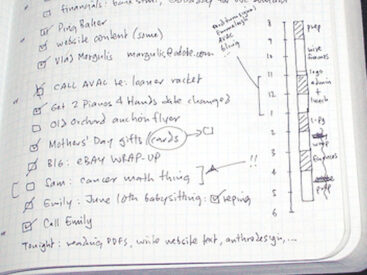 financials:
Ping Baker
website content (some)
Vlad Margulis margulis@adobe.com
CALL AVAC re: loaner racket
Get 2 Pianos 4 Hands date changed
Old Orchard auction flyer
Mothers' Day gifts (cards)
BIG: eBAY WRAP-UP
Sam: cancer math thing
!!
Emily: June 10th babysitting:
Call Emily
Tonight: reading PDFs, write website text, anthrodesign, ...
AVAC
8
9
10
11
12
1
2
3
4
5
6
prep
logo
admin +
lunch